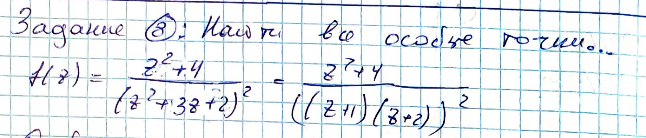 Задание ⑧: Найти все особые точки...
f(z) = \frac{z^2+4}{(z^2+3z+2)^2} = \frac{z^2+4}{((z+1)(z+2))^2}